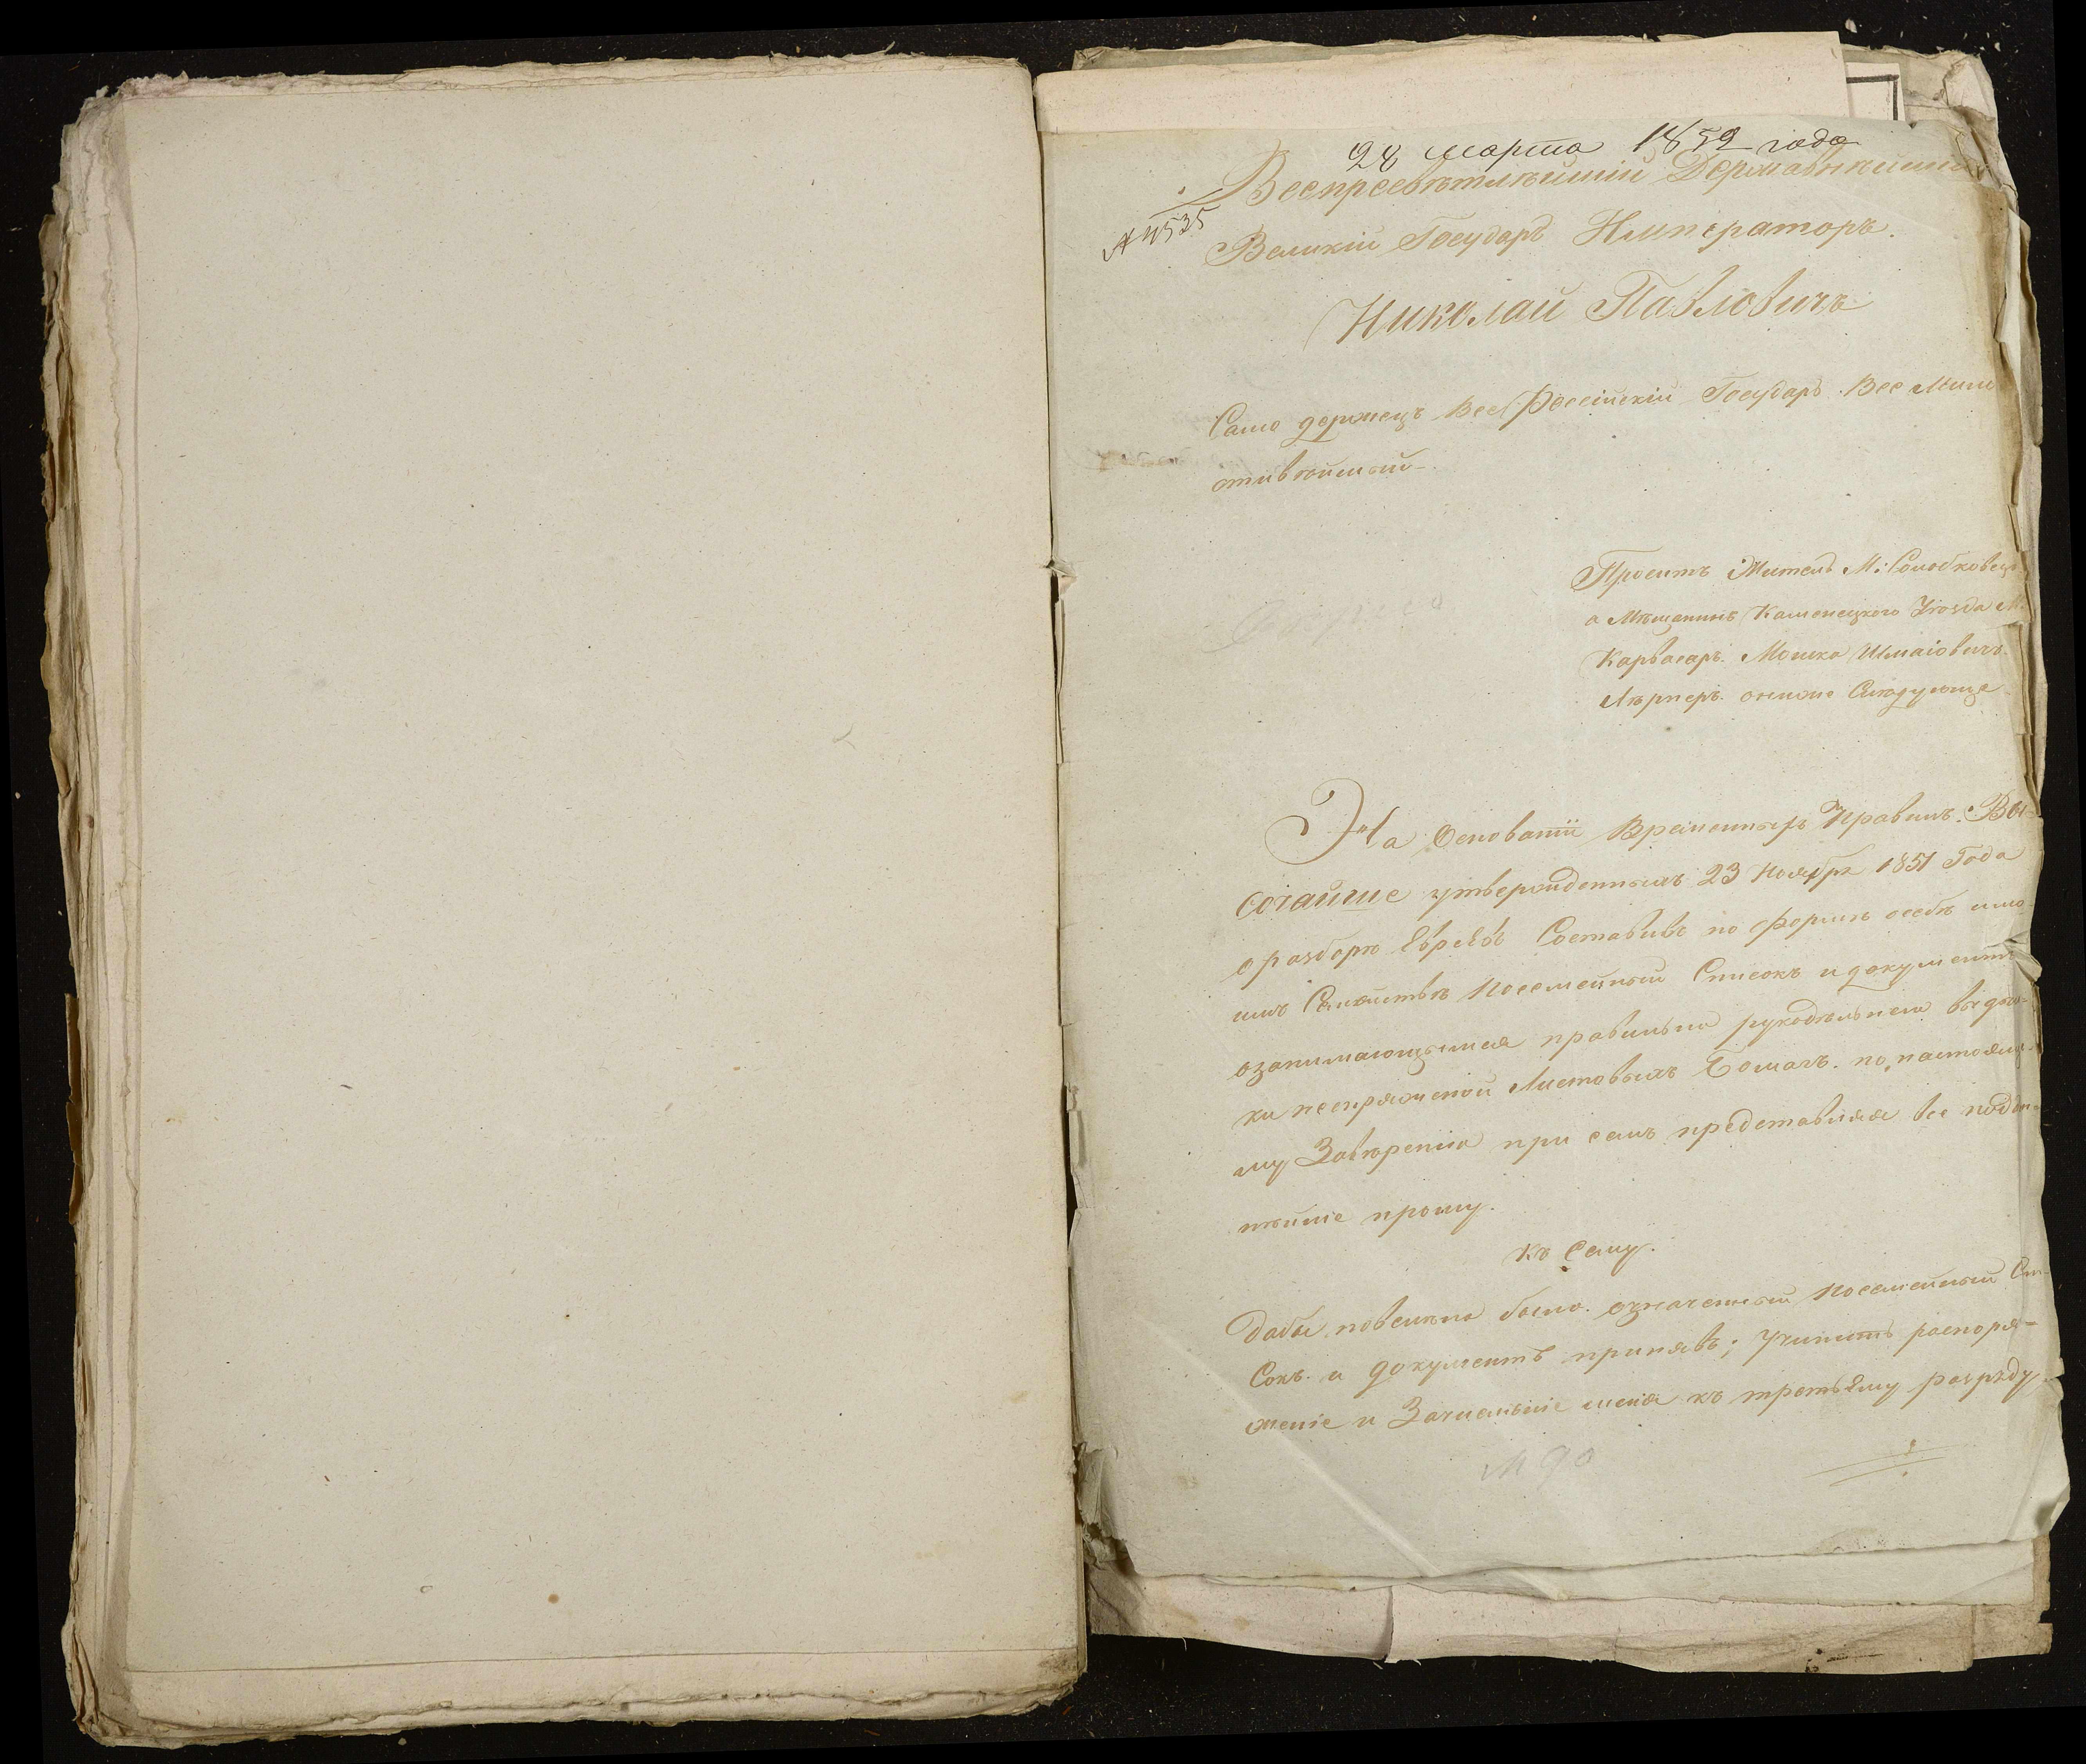 28 марта 1852 года
№ 4535
Всепресвѣтлѣйшій Державнѣйшій
Великій Государь Императоръ.
Николай Павловичъ
Само держецъ Все Россійскій Государь Все Мило
стивѣйшый.
Проситъ Житель М: Солобковецъ
а Мѣщанинъ Каменецкого Уѣзда М.
Карвасаръ. Мошко Шмаіовичъ.
Лѣрнеръ. о ниже Слѣдующе
На Основаніи Временныхъ Правилъ. Вы-
сочайше утвержденныхъ 23 Ноября 1851 Года
о разборѣ Евреевъ Составивъ по формѣ о себѣ и мо-
имъ Семѣйствѣ Посемейный Списокъ и документъ
о занимающымся правильно рукодѣльнею
ки Листовыхъ по настоящ-
му Завѣренію при семъ представляя все подда-
нѣйше прошу.
Къ Сему.
Дабы повелѣно было. означенный Посемейный Спи
Сокъ. и Документъ принявъ; Учинить распоря=
женіе и Зачисленіе меня къ третьему разряду
№ 90